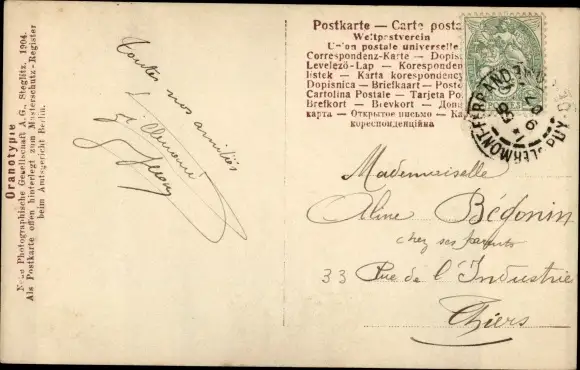 Oranotypie
Neue Photographische Gesellschaft A.G., Steglitz. 1904.
Als Postkarte offen hinterlegt zum Musterschutz-Register
beim Amtsgericht Berlin.
Toutes nos amitiés
Postkarte — Carte posta
Weltpostverein
Union postale universelle.
Correspondenz-Karte — Dopis
Levelező-Lap — Koresponden
listek — Karta korespondency
Dopisnica — Briefkaart — Poste
Cartolina Postale — Tarjeta Po
Brefkort — Brevkort — Дона
карта — Открытое письмо — Ка
кореспонденційна
CLERMONT-FERRAND
PUY-DE-D
Mademoiselle
Aline Bégonin
chez ses parents
33 Rue de l'Industrie
Thiers